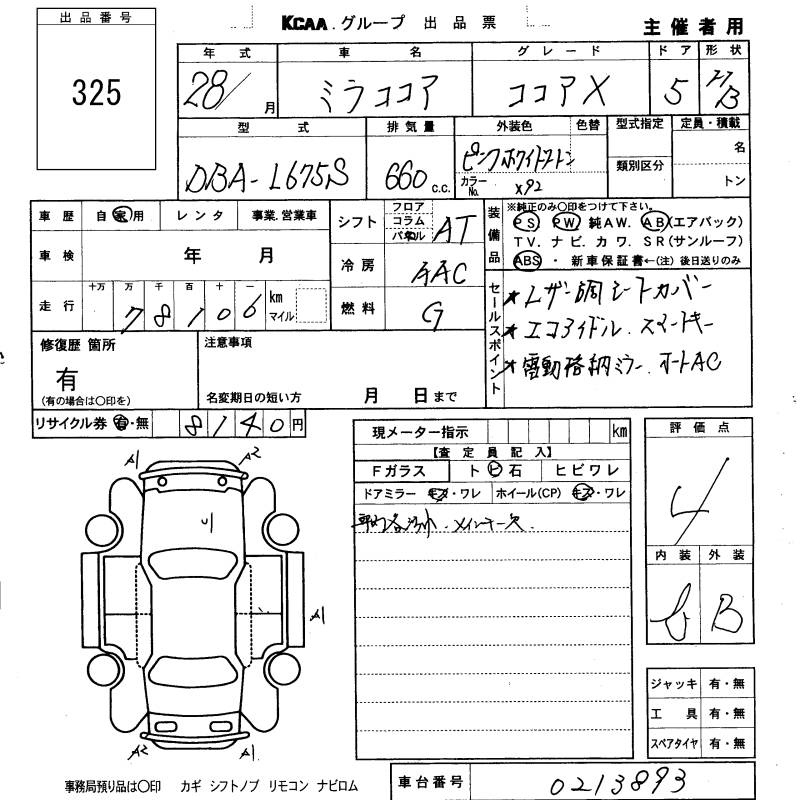 出品番号
325
KCAA.グループ 出品票
主催者用
年式 車名 グレード ドア 形状
28/ 月 ミラココア ココアX 5 H/B
型式 排気量 外装色 色替 型式指定 定員・積載
DBA-L675S 660 c.c. ピンクホワイトツートン 類別区分 名
カラーNo. X92 トン
車歴 自家用 レンタ 事業.営業車
車検 年 月
走行 十万 万 千 百 十 一 km マイル
78106
シフト フロア コラム パネル AT
冷房 AAC
燃料 G
装備品
※純正のみ〇印をつけて下さい。
PS PW 純AW. AB(エアバック)
TV. ナビ. カワ. SR(サンルーフ)
ABS ・ 新車保証書←(注)後日送りのみ
セールスポイント
★レザー調シートカバー
★エコアイドル.スマートキー
★電動格納ミラー.オートAC
修復歴 箇所
有
(有の場合は〇印を)
注意事項
名変期日の短い方 月 日まで
リサイクル券 有・無 8140円
現メーター指示 km
【査定員記入】
Fガラス トビ石 ヒビワレ
ドアミラー キズ・ワレ ホイール(CP) キズ・ワレ
評価点
4
内装 外装
B
A1 A2
A1
A2 A1
ジャッキ 有・無
工具 有・無
スペアタイヤ 有・無
事務局預り品は〇印 カギ シフトノブ リモコン ナビロム
車台番号 0213893